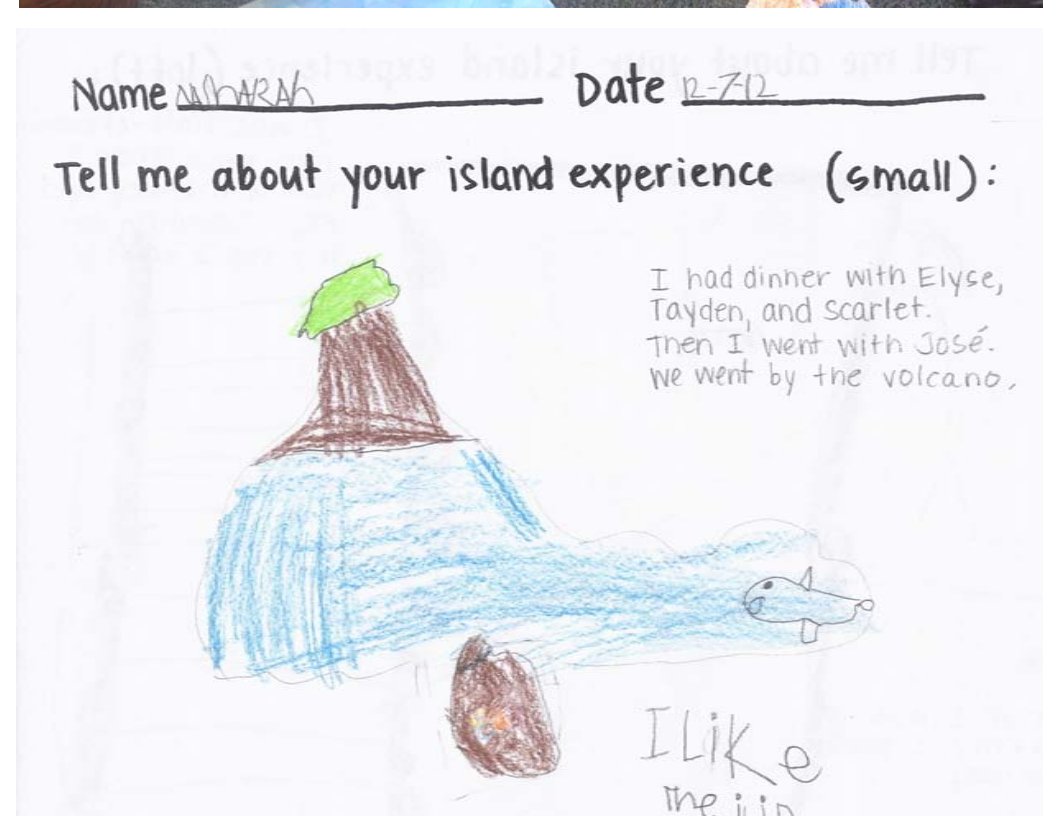 Name Date 12-7-12
Tell me about your island experience (small):
I had dinner with Elyse,
Tayden, and Scarlet.
Then I went with José.
We went by the volcano.
I Like
The